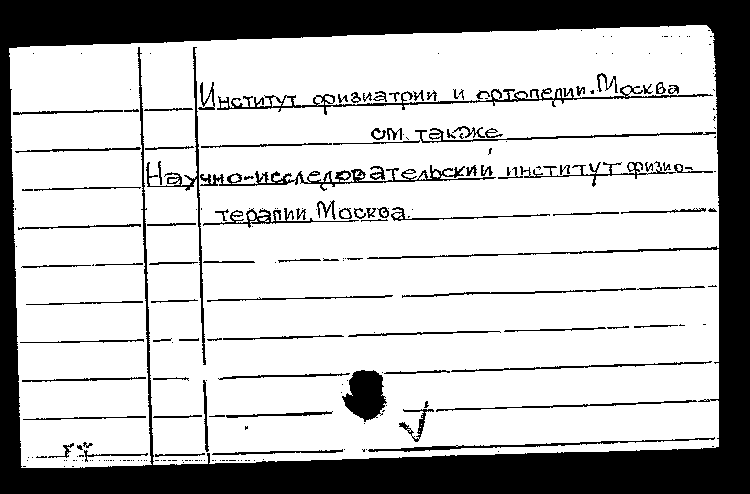 Институт физиатрии и ортопедии. Москва
см. также
Научно-исследовательский институт физио-
терапии. Москва.